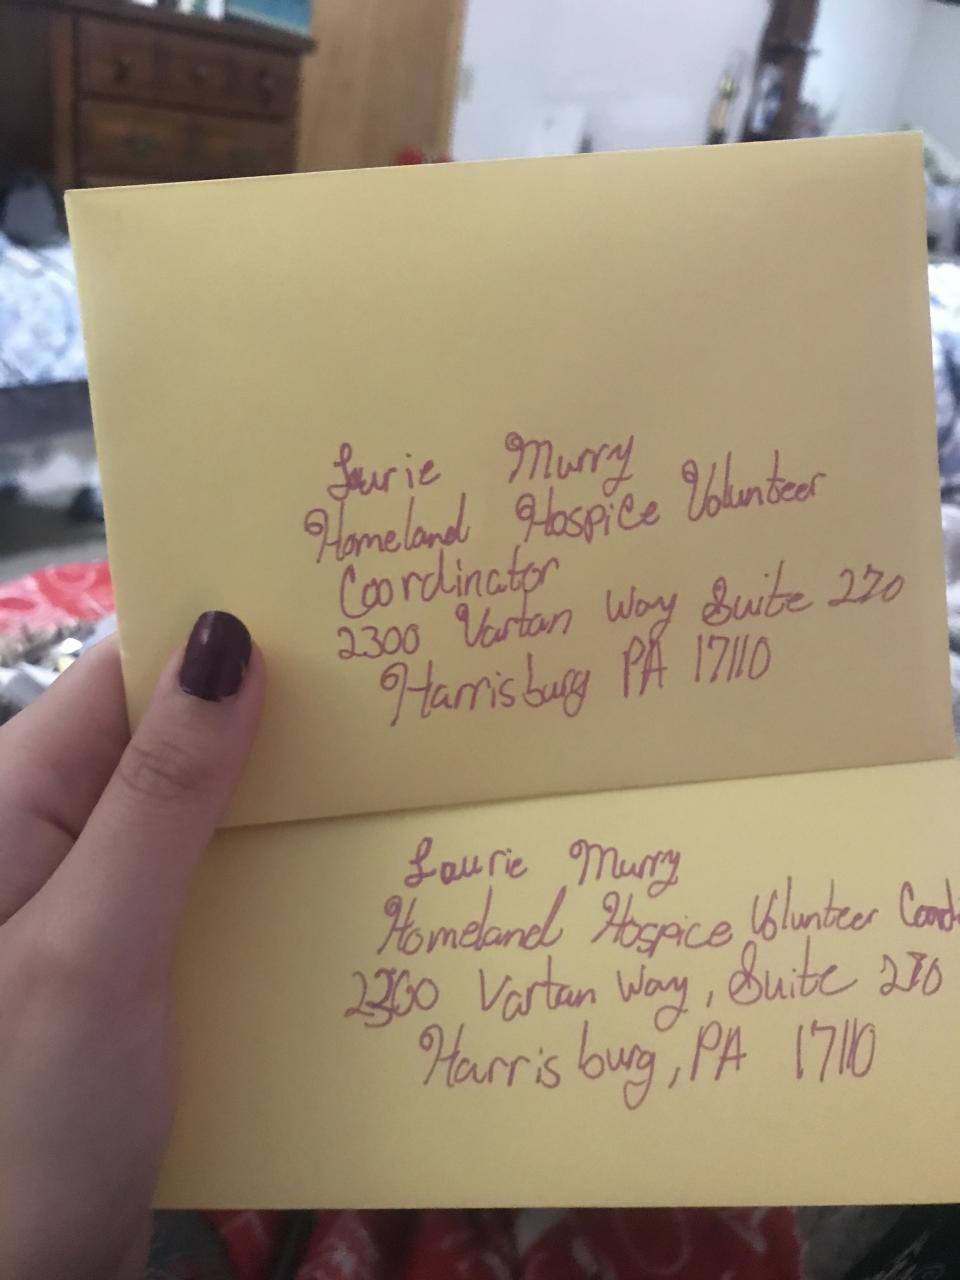 Laurie Murry
Homeland Hospice Volunteer
Coordinator
2300 Vartan Way Suite 270
Harrisburg PA 17110
Laurie Murry
Homeland Hospice Volunteer Coordi
2300 Vartan Way, Suite 270
Harrisburg, PA 17110